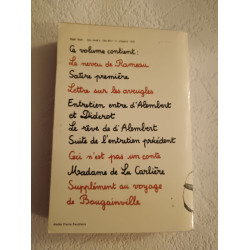 Ce volume contient :
Le neveu de Rameau
Satire première
Lettre sur les aveugles
Entretien entre d'Alembert
et Diderot
Le rêve de d'Alembert
Suite de l'entretien précédent
Ceci n'est pas un conte
Madame de La Carlière
Supplément au voyage
de Bougainville